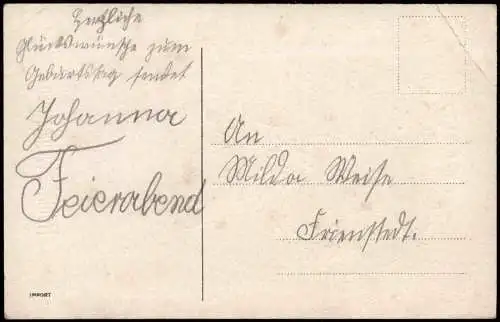 Herzliche
Glückswünsche zum
Geburtstag sendet
Johanna
Feierabend
An
Milda Weise
Frienstedt.
IMPORT